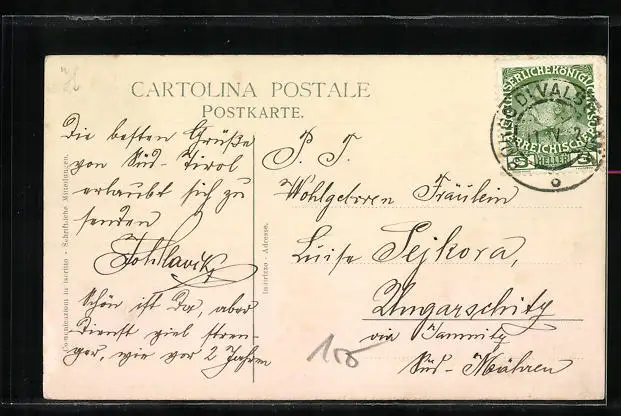 CARTOLINA POSTALE
POSTKARTE.
Die besten Grüße
von Süd-Tirol
erlaubt sich zu
senden
Schön ist da, aber
Dienst viel stren-
ger, wie vor 2 Jahren
Comunicazioni in iscritto - Schriftliche Mitteilungen.
Indirizzo - Adresse.
P. T.
Wohlgeboren Fräulein
Luise Sejkora,
Ungarschitz
via Jamnitz
Süd-Mähren
100
KAISERLICHE KÖNIGLICHE
ÖSTERREICHISCHE
5 HELLER 5
BORGO DI VALSUGANA